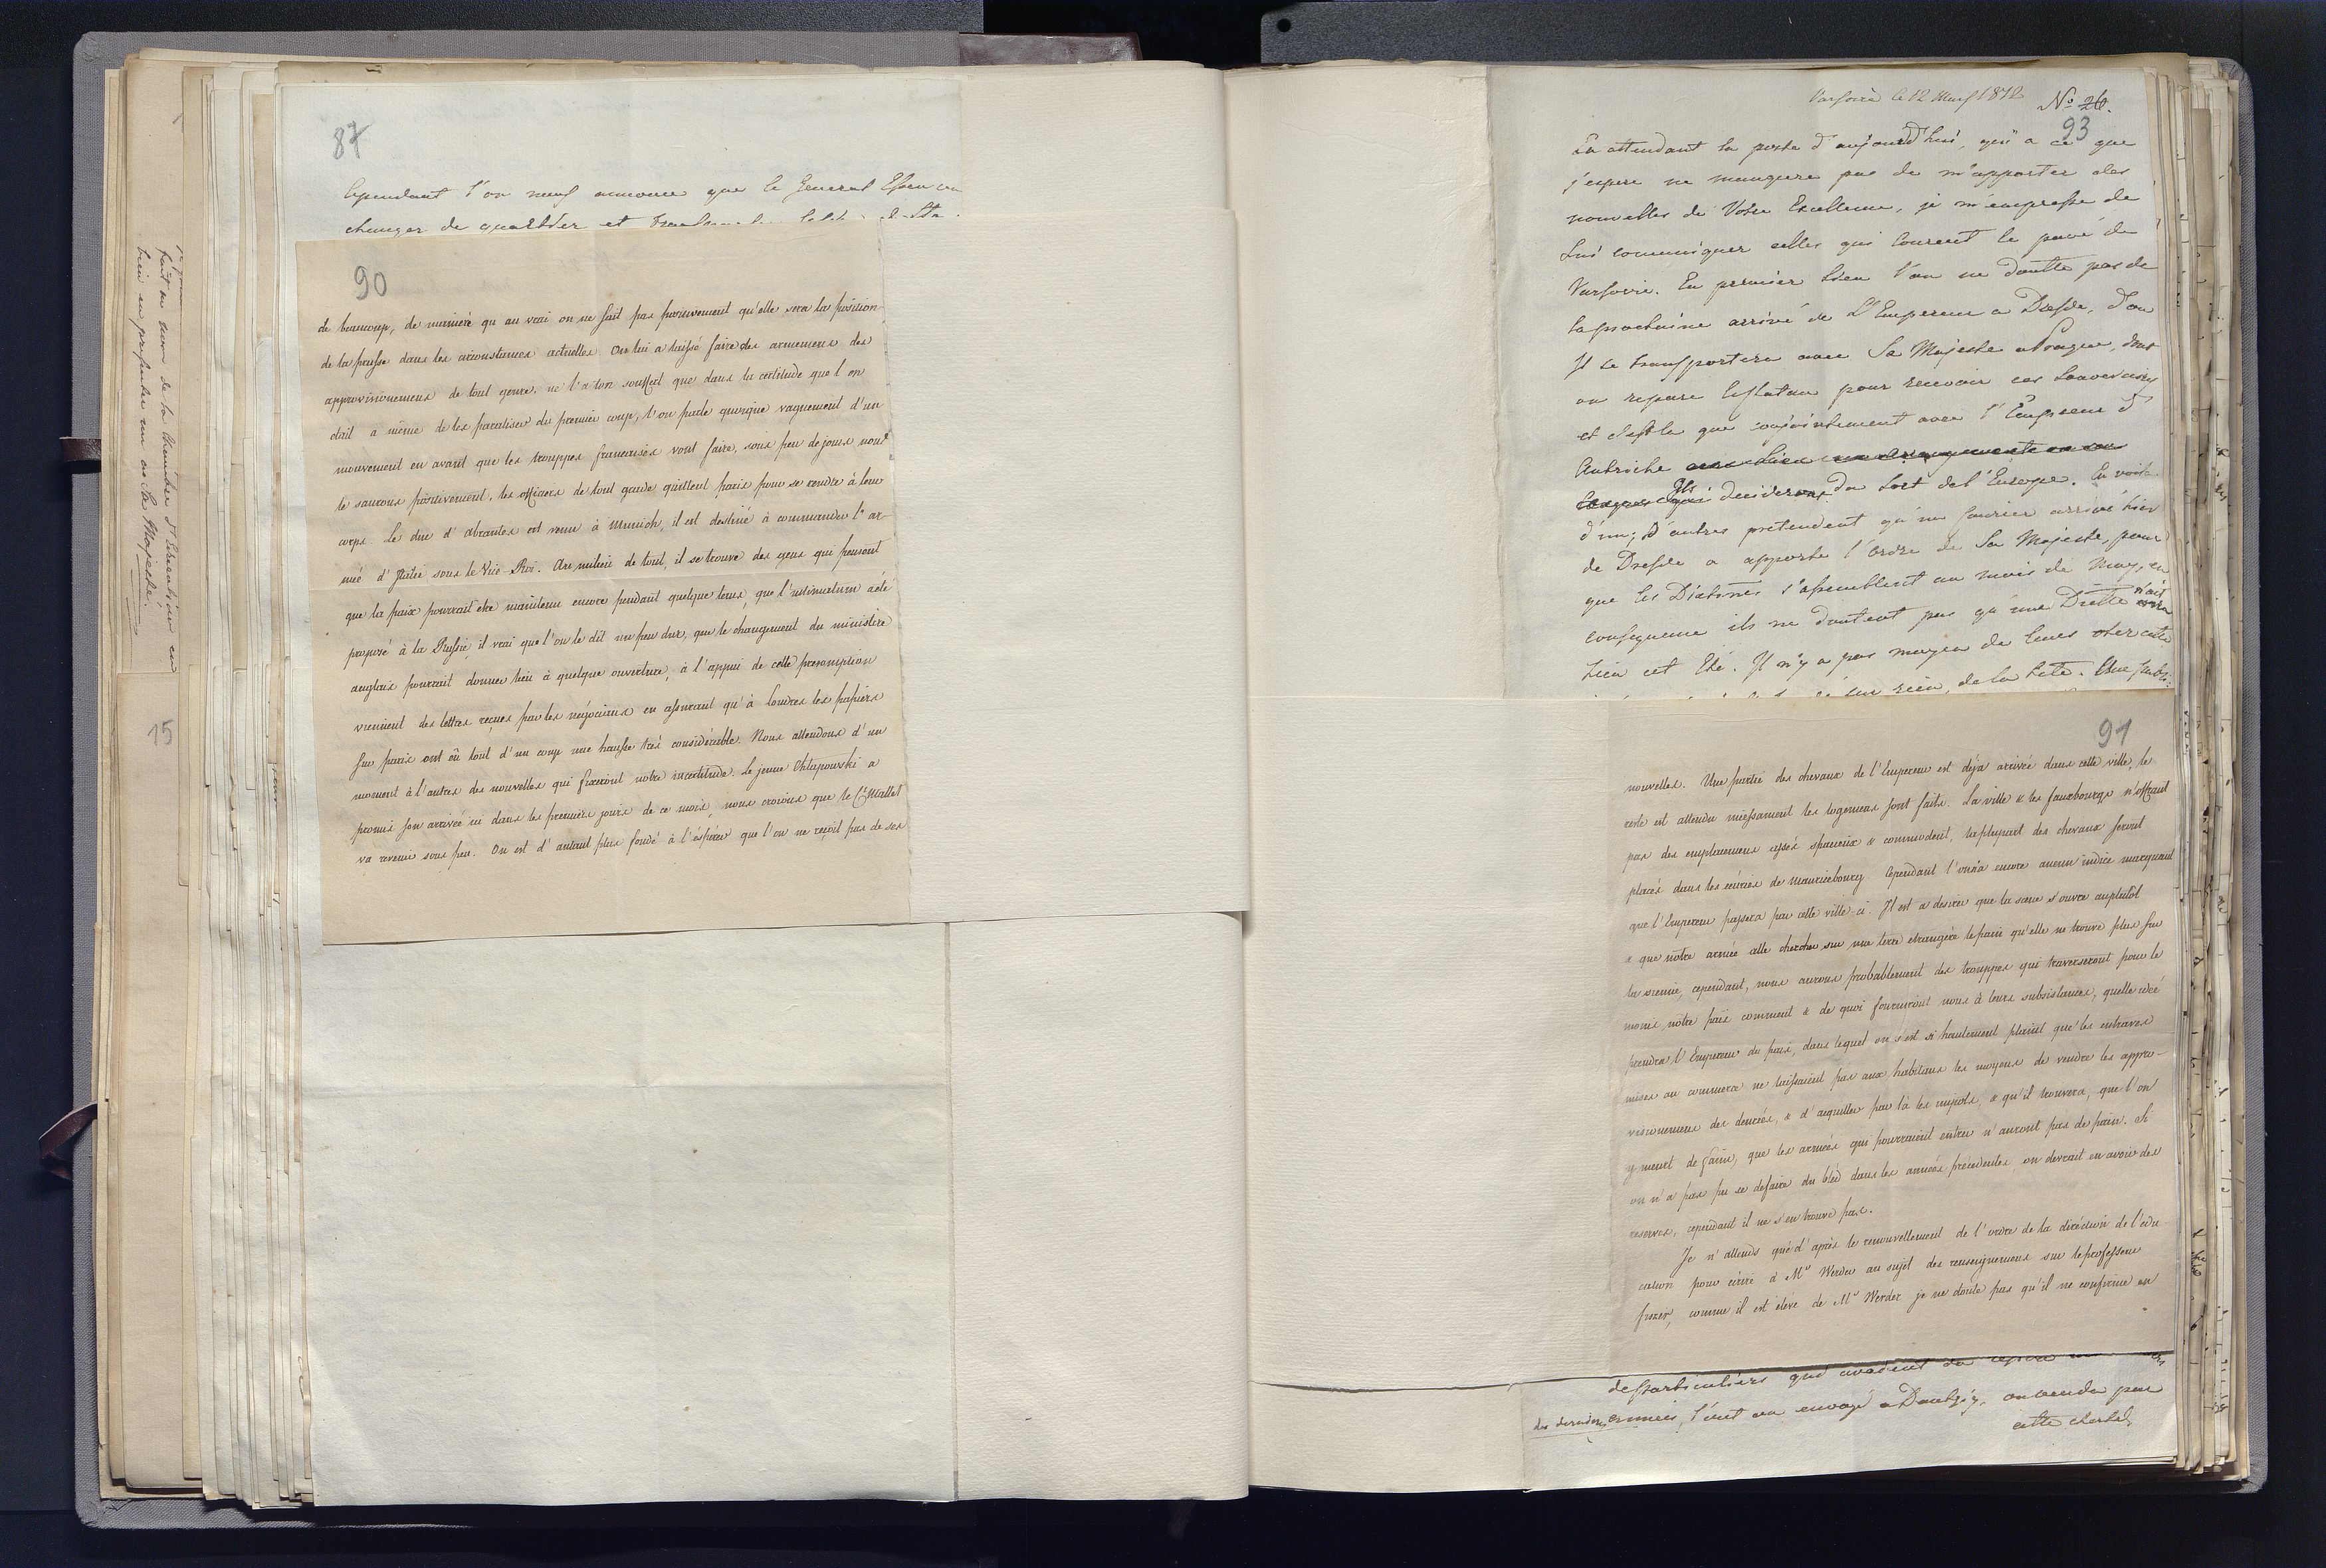 87
Cependant l'on nous annonce que le General Essen va
changer de quartier et
90
de beaucoup, de maniere qu au vrai on ne sait pas positivement qu'elle sera la position
de la prusse dans les circonstances actuelles. On lui a laissé faire des armemens des
approvisionemens de tout genre, ne l'a ton souffert que dans la certitude que l on
etait a même de les paraliser du premier coup, l'on parle quoique vaguement d'un
mouvement en avant que les trouppes francaises vont faire, sous peu de jours nous
le saurons positivement, les officiers de tout grade quittent paris pour se rendre à leur
corps. Le duc d'abrantes est venu à Munich, il est destiné à commander l'ar-
mé d'Italie sous le Vice-Roi. Au milieu de tout, il se trouve des gens qui pensent
que la paix pourrait etre maintenue encore pendant quelque tems, que l'ultimatum a été
proposé à la Russie, il vrai que l'on le dit un peu dur, que le changement du ministère
anglais pourrait donner lieu à quelque ouverture, à l'appui de cette presomption
viennent des lettres reçues par les négocians en assurant qu'à londres les papiers
sur paris ont eû tout d'un coup une hausse très considérable. Nous attendons d'un
moment à l'autre des nouvelles qui fixeront notre incertitude. Le jeune Chlapowski a
promis son arrivée ici dans les premiers jours de ce mois, nous croions que le Ct Mallet
va revenir sous peu. On est d'autant plus fondé à l'éspérer que l'on ne reçoit pas de ses
fait au nom de la Chambre d'Education en
lieu en presenter un au Sa Majesté.
15
Varsovie le 12 Mars 1812
No 26.
93
En attendant la poste d'aujourd'hui, qui a ce que
j'espere ne manquera pas de m'apporter des
nouvelles de Votre Excellence, je m'empresse de
Lui comuniquer celles qui courent le pavé de
Varsovie. En premier lieu l'on ne doutte pas de
la prochaine arrivé de L'Empereur a Dresde, d'ou
Il se transportera avec Sa Majesté a Prague, dont
on repare le chateau pour recevoir ces Souverains
et c'est la que conjointement avec l'Empereur d'
Autriche
Ils decideront du sort de l'Europe. En voila
d'un; D'autres pretendent qu'un courier arrivé hier
de Dresde a apporté l'ordre de Sa Majesté, pour
que les Dietines s'assemblent au mois de May, en
consequence ils ne doutent pas qu'une Diette n'ait
lieu cet Eté. Il n'y a pas moyen de leurs oter cette
de la tete.
91
nouvelles. Une partie des chevaux de l'Empereur est déja arrivée dans cette ville, le
reste est attendu incessament les logemens sont faits. La ville & les fauxbourgs n'offrant
pas des emplacemens assés spacieux & commodent, la plupart des chevaux seront
placés dans les écuries de Mauricebourg. Cependant l'on n'a encore aucun indice marquant
que l'Empereur passera par cette ville-ci. Il est a desirer que la scene s'ouvre au plutôt
& que nôtre armée aille chercher sur une terre etrangère le pain qu'elle ne trouve plus sur
la sienne, cependant, nous aurons probablement des trouppes qui traverseront pour le
moins nôtre païs comment & de quoi fourniront nous à leurs subsistances, quelle idée
prendra l'Empereur du païs, dans lequel on s'est si hautement plaint que les entraves
mises au commerce ne laissaient pas aux habitans les moyens de vendre les appro-
visionemens des denrées, & d'acquitter par là les impots, & qu'il trouvera, que l'on
y meurt de faim, que les armées qui pourraient entrer n'auront pas de pain. Si
on n'a pas pu se defaire du bled dans les années précédentes on devrait en avoir des
reserves, cependant il ne s'en trouve pas.
Je n'attends qué d'après le renouvellement de l'ordre de la diréction de l'edu
cation pour écrire à Mr Werder au sujet des renseignemens sur le professeur
frezer, comme il est elevé de Mr Werder je ne doute pas qu'il ne confirme en
des particuliers qui avoient du
des dernieres années, l'ont envoyé a Dantzig,
cette cherté